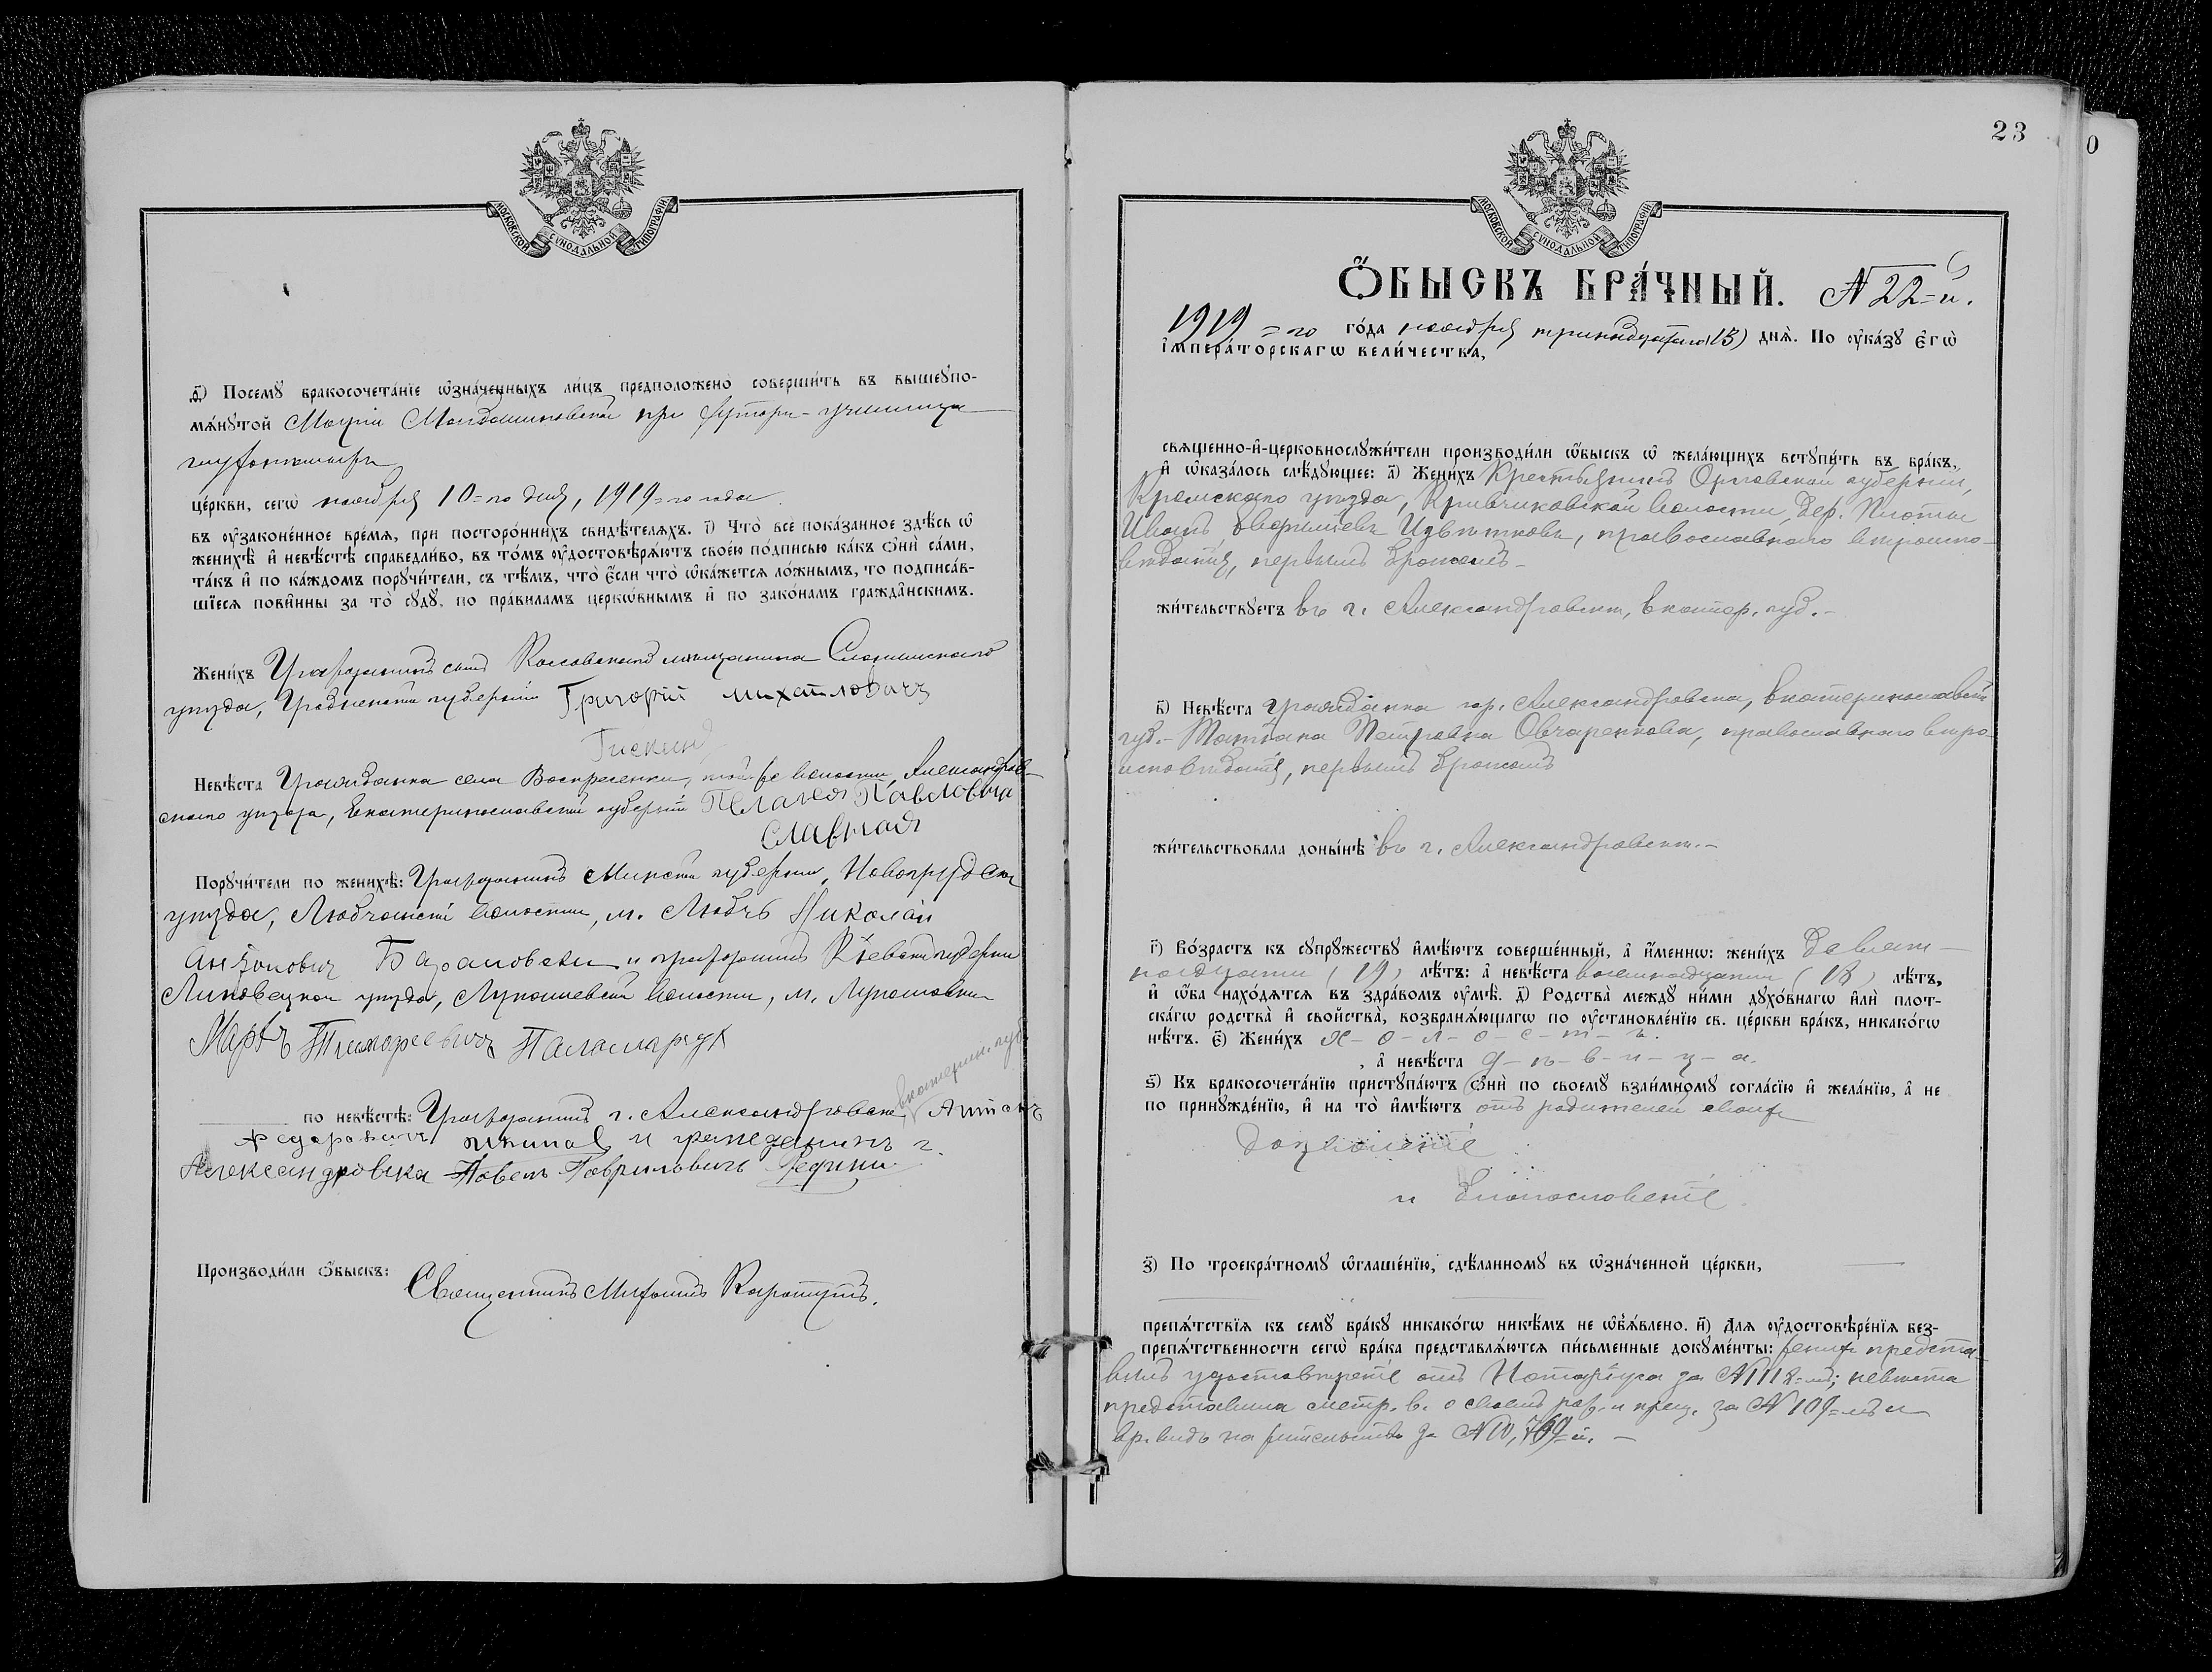 МОСКОВСКОЙ СѴНОДАЛЬНОЙ ТИПОГРАФІИ
ѳ҃) Посемꙋ бракосочета́нїе ѡ҆зна́ченныхъ ли́цъ предположено̀ соверши́ть въ вышеꙋпо-
мѧ́нꙋтой Маріи Магдалиновской при хуторѣ - училища
церкви, сегѡ̀ ноября 10=го дня, 1919=го года
въ ᲂу҆зако́ненное вре́мѧ, при посторо́ннихъ свидѣ́телѧхъ. і҃) Что̀ всѐ пока́занное здѣ́сь ѡ҆
женихѣ̀ и҆ невѣ́стѣ справедли́во, въ то́мъ ᲂу҆достовѣрѧ́ютъ своє́ю по́дписью ка́къ ѻ҆нѝ са́ми,
та́къ и҆ по ка́ждомъ порꙋчи́тели, съ тѣ́мъ, что̀ є҆́сли что̀ ѡ҆ка́жетсѧ ло́жнымъ, то подписа́в-
шїесѧ пови́нны за то̀ сꙋдꙋ̀, по пра́виламъ церко́внымъ и҆ по зако́намъ гражда́нскимъ.
Жени́хъ Гражданинъ сынъ Коссовскаго мѣщанина Слонимскаго
уѣзда, Гродненской губерніи Григорій михайловичъ
Гискинд
Невѣ́ста Гражданка села Воскресенки, той же волости, Александров-
скаго уѣзда, Екатеринославской губерніи Пелагея Павловна
Славная
Порꙋчи́тели по женихѣ̀: Гражданинъ Минской губерніи, Новогрудскаго
уѣзда, Любчанской волости, м. Любчъ Николай
Антонович Барановски и гражданинъ Кіевской губерніи
Липовецкаго уѣзда, Лукашевской волости, м. Лукашовки
Маркъ Тимофеевичъ Паламарчук
по невѣ́стѣ: Гражданинъ г. Александровска, Екатерин. губ. Антонъ
Федоровичъ и гражданинъ г.
Александровска Павелъ Гавриловичъ
Производи́ли ѻ҆́быскъ:
Священникъ Митрофанъ
23
0
МОСКОВСКОЙ СѴНОДАЛЬНОЙ ТИПОГРАФІИ
Ѻ҆́БЫСКЪ БРА́ЧНЫЙ. N 22=й.
1919=го го́да ноября тринадцатаго (13) днѧ̀. По ᲂу҆ка́зꙋ є҆гѡ̀
і҆мпера́торскагѡ вели́чества,
свѧще́нно-и҆-церковнослꙋжи́тели производи́ли ѻ҆́быскъ ѡ҆ жела́ющихъ встꙋпи́ть въ бра́къ,
и҆ ѡ҆каза́лось слѣ́дꙋющее: а҃) Жени́хъ Крестьянинъ Орловской губерніи,
Кромскаго уѣзда, Кривчиковской волости, дер. Плоты
Иванъ Цвѣтковъ, православнаго вѣроиспо-
вѣданія, первымъ бракомъ -
жи́тельствꙋетъ въ г. Александровскѣ, Екатер. губ. -
в҃) Невѣ́ста гражданка гор. Александровска, Екатеринославской
губ. - Татьяна Петровна Овчаренкова, православнаго вѣро-
исповѣданія, первымъ бракомъ
жи́тельствовала доны́нѣ въ г. Александровскѣ. -
г҃) Во́зрастъ къ сꙋпрꙋ́жествꙋ и҆мѣ́ютъ соверше́нный, а҆ и҆́меннѡ: жени́хъ девят-
надцати (19) лѣ́тъ: а҆ невѣ́ста восемнадцати (18) лѣ́тъ,
и҆ ѻ҆́ба нахо́дѧтсѧ въ здра́вомъ ᲂу҆мѣ̀. д҃) Родства̀ междꙋ ни́ми дꙋхо́внагѡ и҆лѝ плот-
ска́гѡ родства̀ и҆ сво́йства, возбранѧ́ющагѡ по ᲂу҆становле́нїю св. це́ркви бра́къ, никако́гѡ
нѣ́тъ. є҃) Жени́хъ х-о-л-о-с-т-ъ.
, а҆ невѣ́ста д-ѣ-в-и-ц-а.
ѕ҃) Къ бракосочета́нїю пристꙋпа́ютъ ѻ҆нѝ по своемꙋ̀ взаи́мномꙋ согла́сїю и҆ жела́нїю, а҆ не
по принꙋжде́нїю, и҆ на то̀ и҆мѣ́ютъ отъ родителей своихъ
дозволеніе
и благословеніе.
з҃) По троекра́тномꙋ ѡ҆глаше́нїю, сдѣ́ланномꙋ въ ѡ҆зна́ченной це́ркви,
препѧ́тствїѧ къ семꙋ̀ бра́кꙋ никако́гѡ никѣ́мъ не ѡ҆б̾ѧ́влено. и҃) Длѧ ᲂу҆достовѣре́нїѧ без-
препѧ́тственности сегѡ̀ бра́ка представлѧ́ютсѧ пи́сьменные докꙋме́нты: женихъ предста-
вилъ удостовѣреніе отъ Нотаріуса за N 1118=мъ; невѣста
представила метр. в. о своемъ рож. и крещ. за N 109=мъ и
вр. видъ на жительство за N